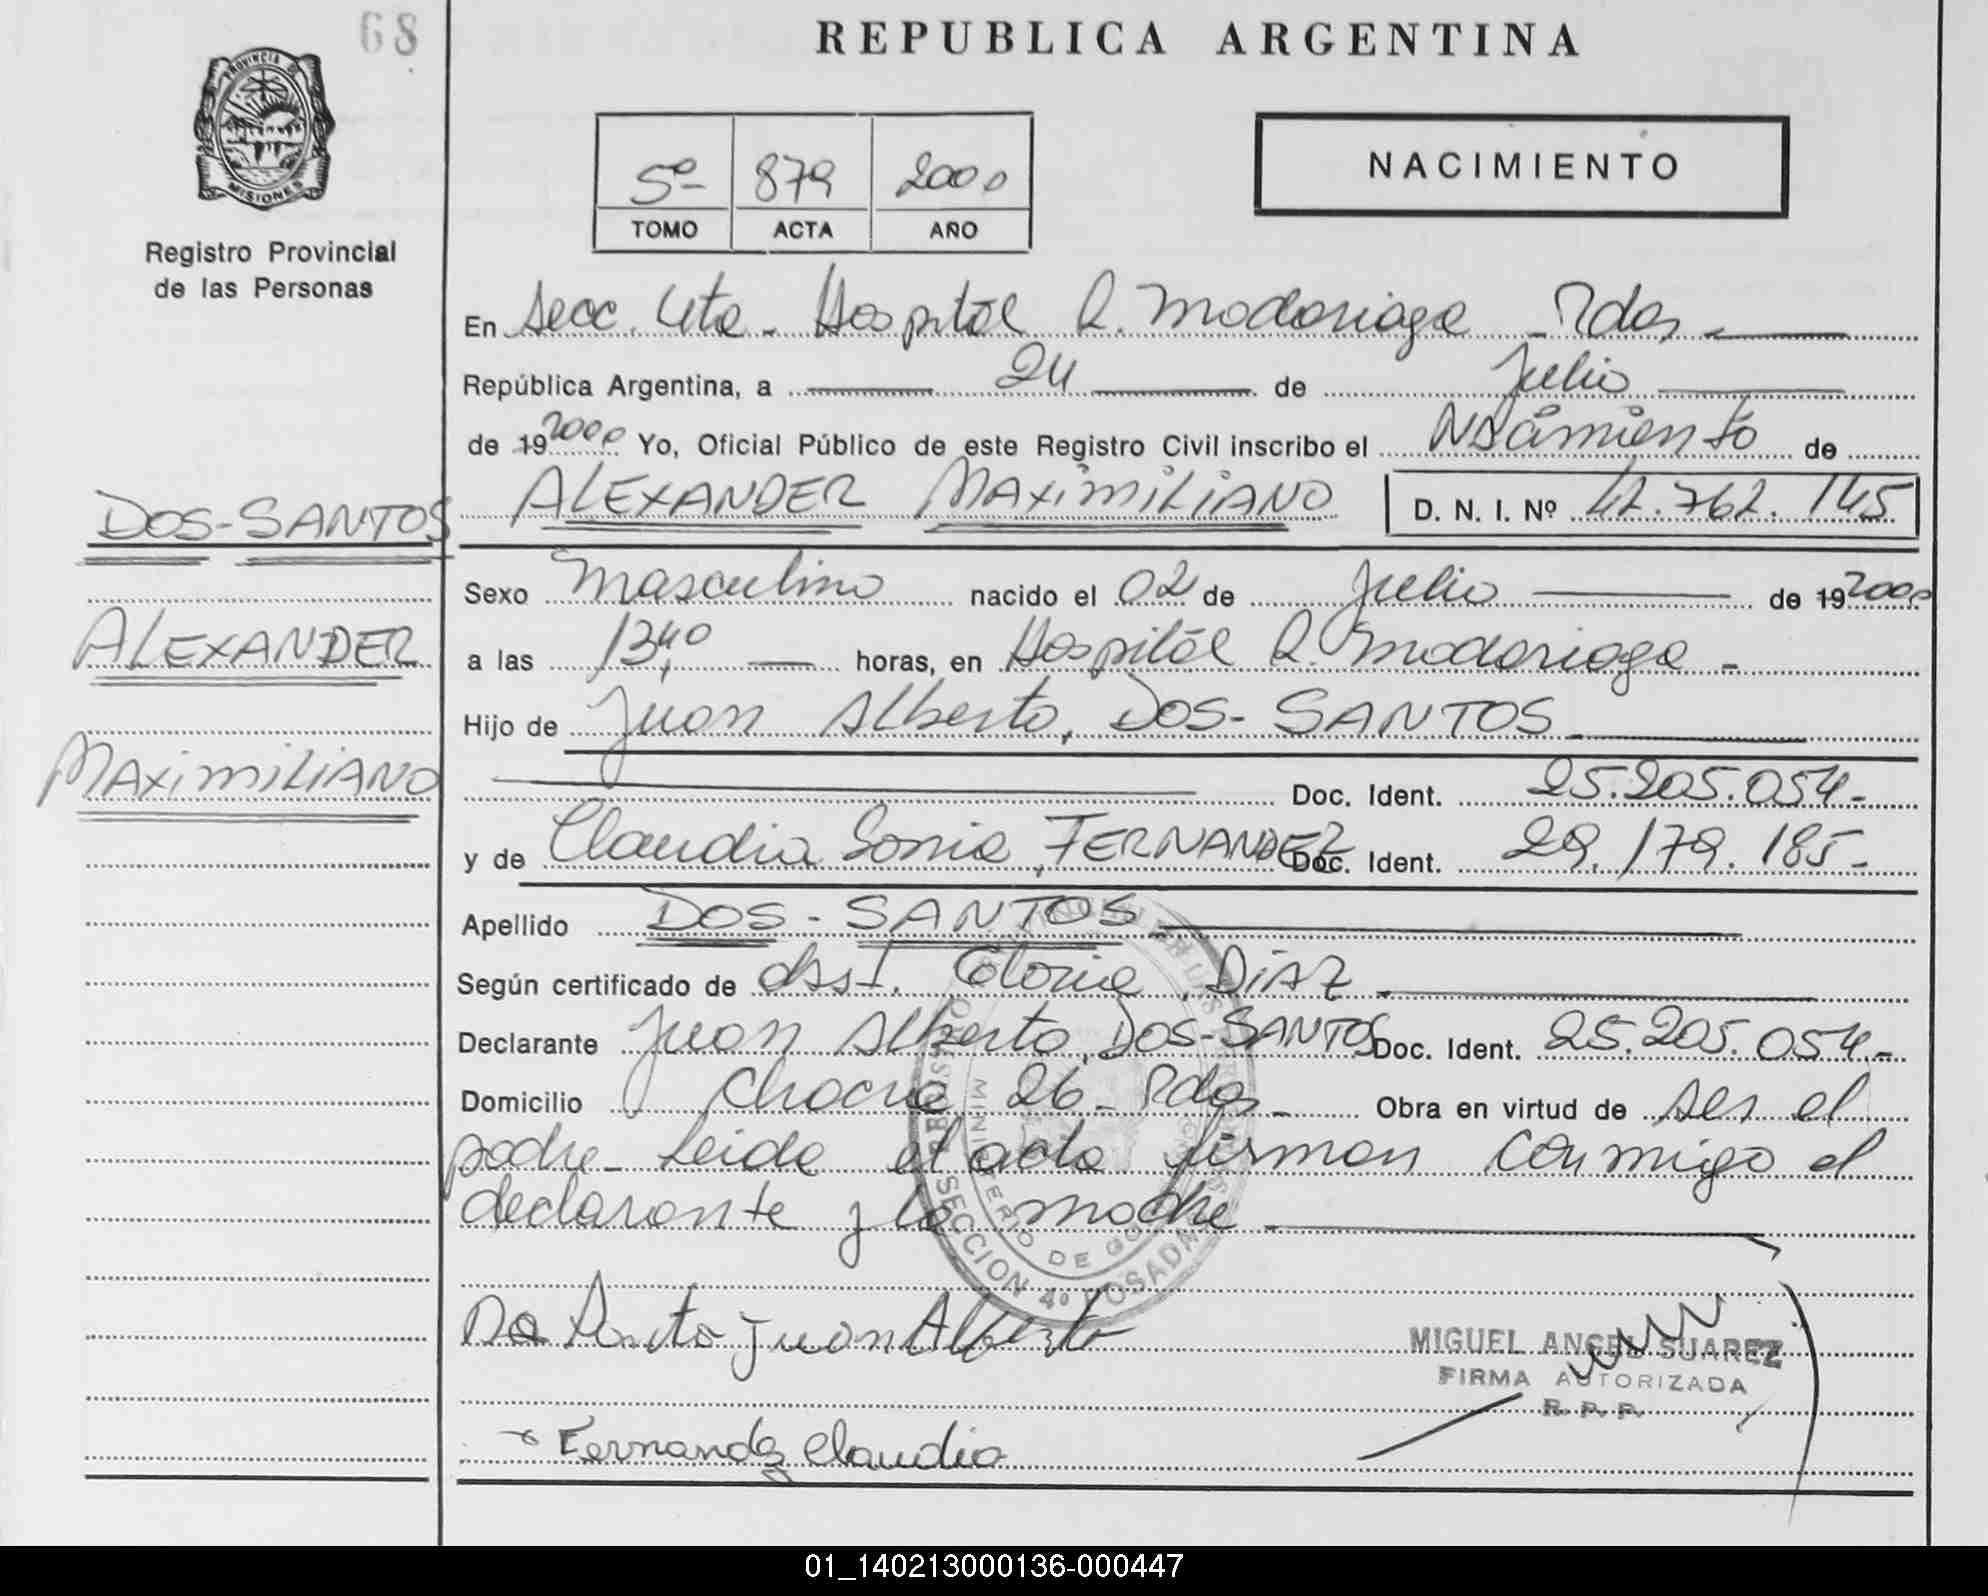 68
REPUBLICA ARGENTINA
PROVINCIA DE
MISIONES
Registro Provincial
de las Personas
5º 879 2000
TOMO ACTA AÑO
NACIMIENTO
En Secc. 4ta. Hospital R. Madariaga - Pdas
República Argentina, a 24 de Julio
de 19 2000 Yo, Oficial Público de este Registro Civil inscribo el Nacimiento de
DOS-SANTOS ALEXANDER MAXIMILIANO D. N. I. Nº 42.762.145
Sexo Masculino nacido el 02 de Julio de 19 2000
ALEXANDER
a las 13,40 horas, en Hospital R. Madariaga -
Hijo de Juan Alberto, DOS-SANTOS
MAXIMILIANO
Doc. Ident. 25.205.054-
y de Claudia Sonia, FERNANDEZ Doc. Ident. 29.179.185-
Apellido DOS-SANTOS
Según certificado de Obst. Gloria, DIAZ
Declarante Juan Alberto, DOS-SANTOS Doc. Ident. 25.205.054-
Domicilio Chacra 26- Pdas- Obra en virtud de ser el
padre- Leida el acta firman conmigo el
declarante y la madre
MINISTERIO DE GO
SECCION 4º POSADAS
Juan Alberto
MIGUEL ANGEL SUAREZ
FIRMA AUTORIZADA
R. P. P.
Fernandez Claudia
01_140213000136-000447